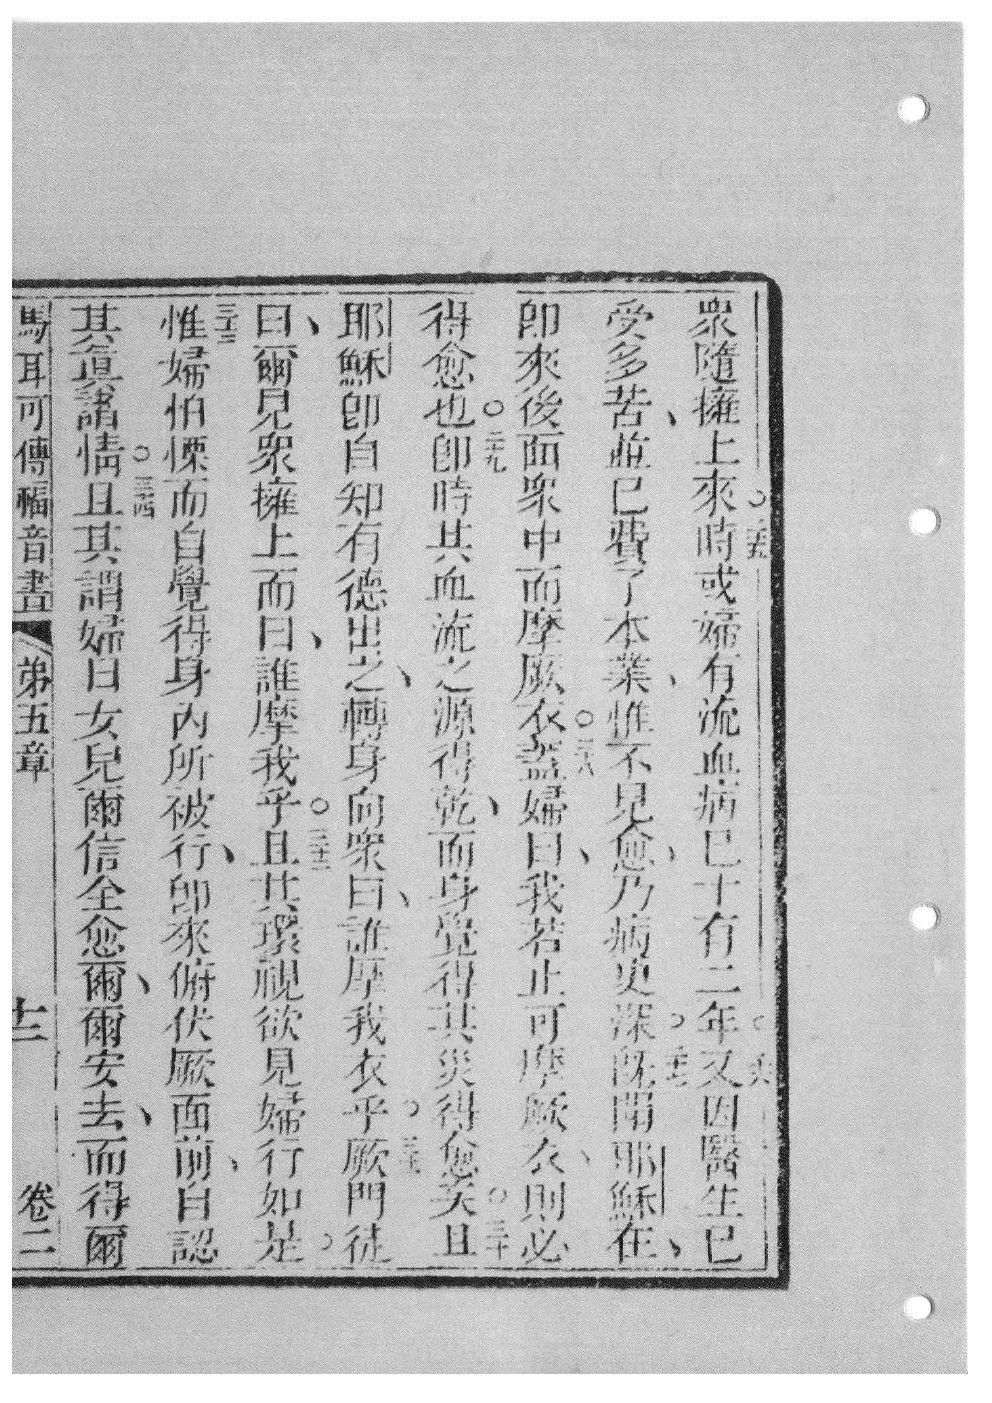 衆隨擁上來○二十五時或婦有流血病已十有二年○二十六又因醫生已
受多苦、並已費了本業、惟不見愈、乃病更深○二十七既聞耶穌在、
卽來後面衆中而摩厥衣○二十八蓋婦曰、我若止可摩厥衣、則必
得愈也○二十九卽時其血流之源得乾、而身覺得其災得愈矣○三十且
耶穌卽自知有德出之、轉身向衆曰、誰摩我衣乎○三十一厥門徒
曰、爾見衆擁上而曰、誰摩我乎○三十二且其環視欲見婦行如是○
三十三惟婦怕慄而自覺得身內所被行、卽來俯伏厥面前、自認
其眞諸情○三十四且其謂婦曰女兒爾信全愈爾、爾安去、而得爾
馬耳可傳福音書 第五章 十三 卷二